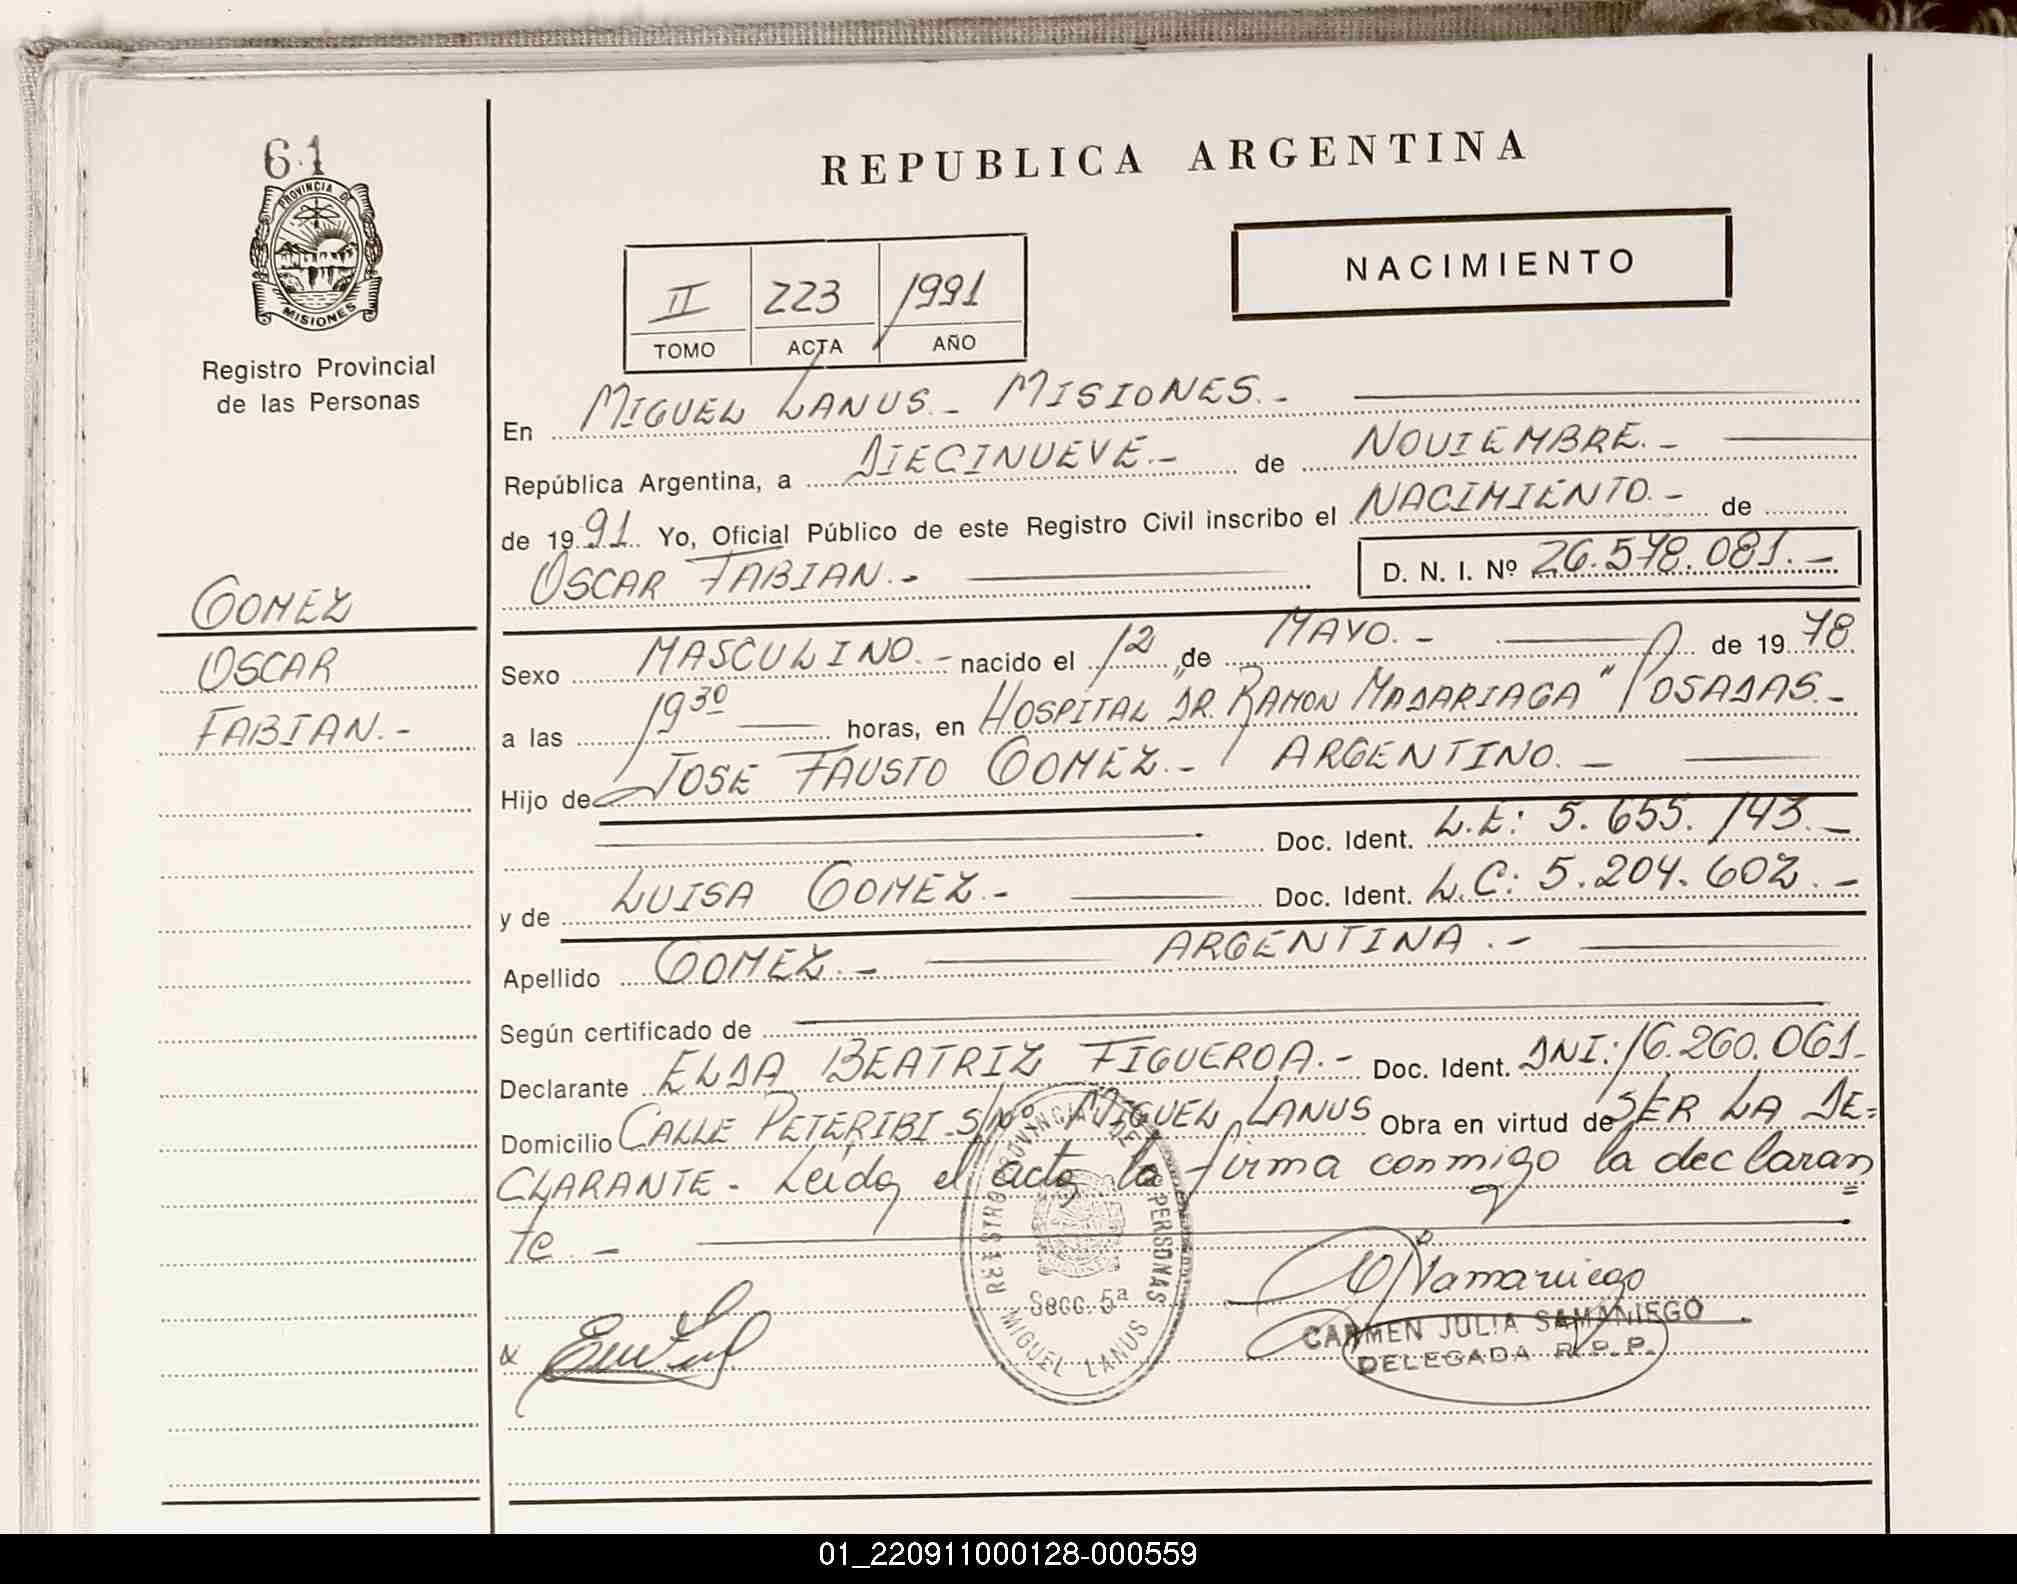 61
PROVINCIA DE
MISIONES
Registro Provincial
de las Personas
GOMEZ
OSCAR
FABIAN.-
REPUBLICA ARGENTINA
NACIMIENTO
II 223 1991
TOMO ACTA AÑO
En MIGUEL LANUS.- MISIONES.-
República Argentina, a DIECINUEVE.- de NOVIEMBRE.-
de 1991. Yo, Oficial Público de este Registro Civil inscribo el NACIMIENTO.- de
OSCAR FABIAN.- D. N. I. Nº 26.578.081.-
Sexo MASCULINO.- nacido el 12 de MAYO.- de 1978
a las 19 30 horas, en HOSPITAL "DR. RAMON MADARIAGA" POSADAS.-
Hijo de JOSE FAUSTO GOMEZ.- ARGENTINO.-
Doc. Ident. L.E: 5.655.143.-
y de LUISA GOMEZ.- Doc. Ident. L.C: 5.204.602.-
Apellido GOMEZ.- ARGENTINA.-
Según certificado de
Declarante ELDA BEATRIZ FIGUEROA.- Doc. Ident. DNI: 16.260.061.-
Domicilio CALLE PETERIBI S/Nº MIGUEL LANUS Obra en virtud de SER LA DE=
CLARANTE. Leida el acta la firma conmigo la declaran=
te.-
REGISTRO PROVINCIAL DE PERSONAS
Secc. 5ª
MIGUEL LANUS
CARMEN JULIA SAMANIEGO
DELEGADA R.P.P.
01_220911000128-000559